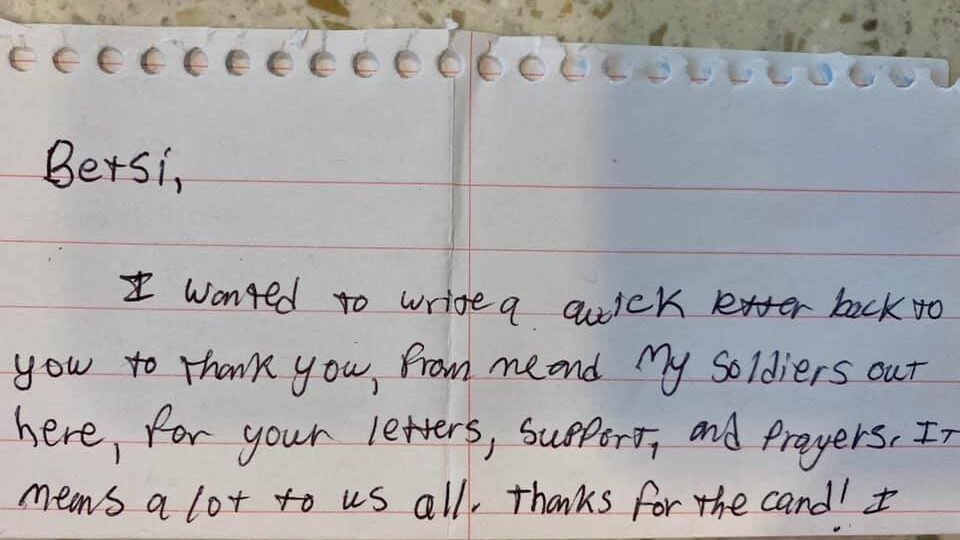 Betsi,
I wanted to write a quick letter back to
you to thank you, from me and my soldiers out
here, for your letters, support, and prayers. It
means a lot to us all. Thanks for the card! I